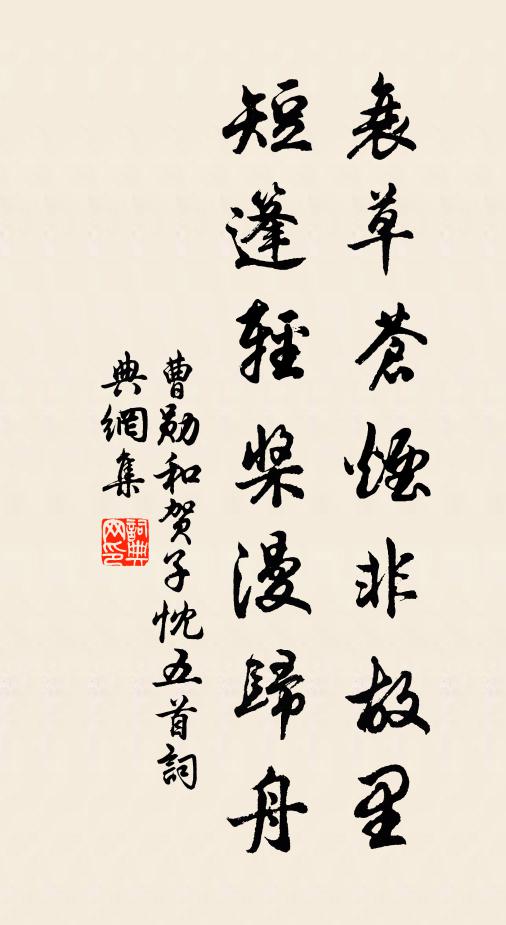 衰草蒼煙非故里
短蓬輕槳漫歸舟
曹勛和賀子忱五首詞
典網集
詞典網印